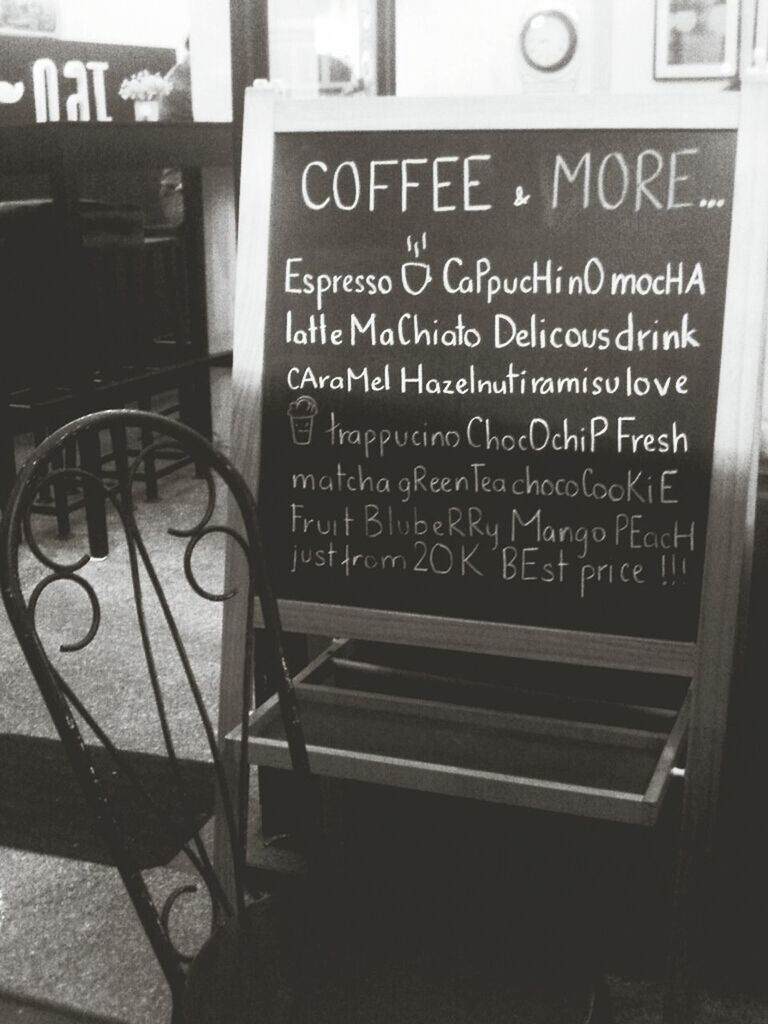 COFFEE & MORE...
Espresso CaPpucHinO mocHA
latte MaChiato Delicous drink
CAraMel Hazelnut iramisu love
frappucino ChocOchiP Fresh
matcha gReenTea choco CooKiE
Fruit BlubeRRy Mango PEacH
just from 20K BEst price !!!